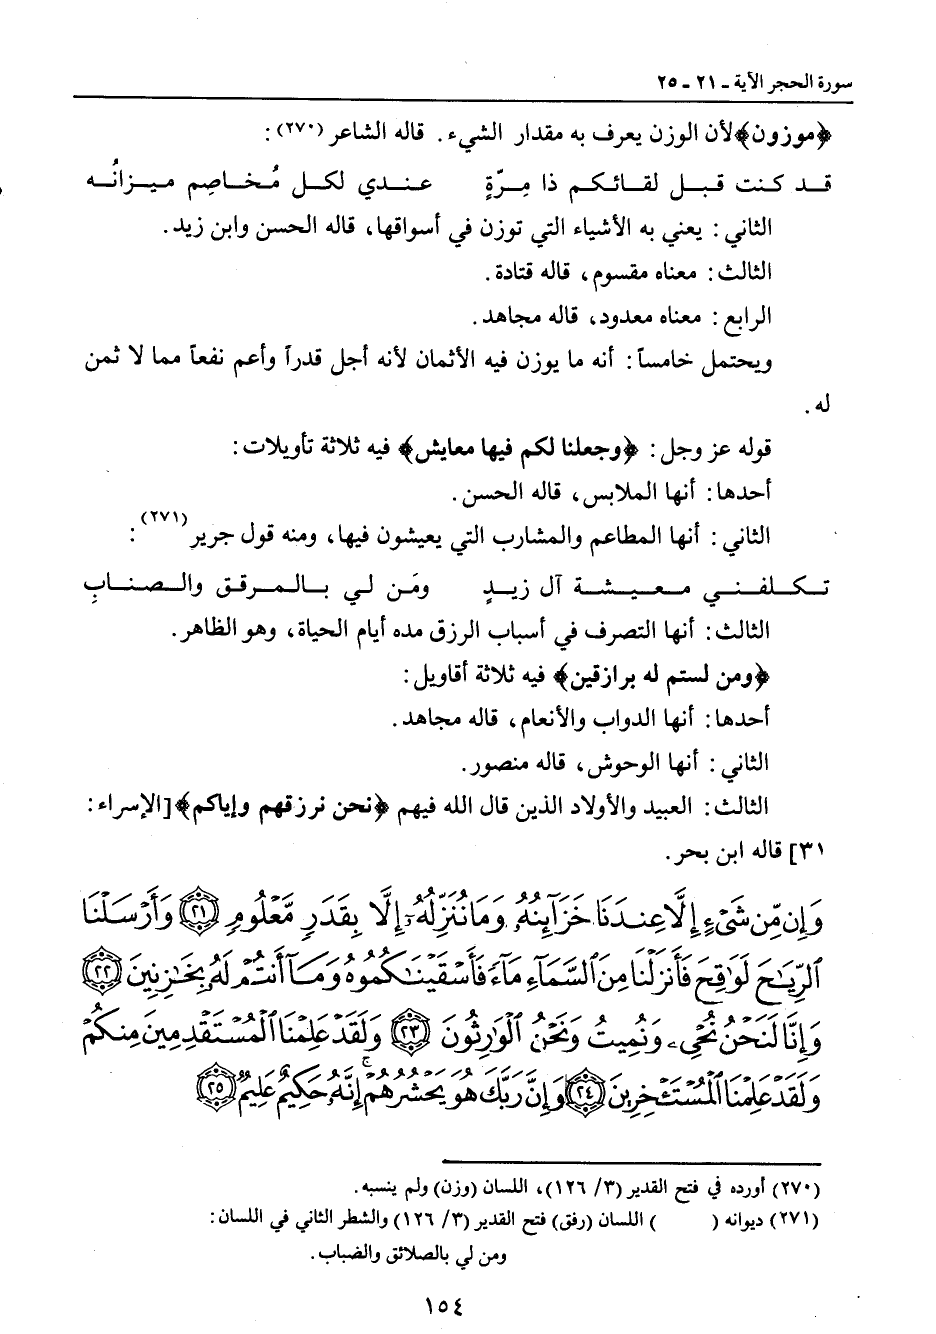 سورة الحجر الآية ـ ٢١ ـ ٢٥
﴿موزون﴾لأن الوزن يعرف به مقدار الشيء. قاله الشاعر (٢٧٠):
قد كنت قبل لقائكم ذا مِرّةٍ عندي لكل مُخاصِم ميزانُه
الثاني: يعني به الأشياء التي توزن في أسواقها، قاله الحسن وابن زيد.
الثالث: معناه مقسوم، قاله قتادة.
الرابع: معناه معدود، قاله مجاهد.
ويحتمل خامساً: أنه ما يوزن فيه الأثمان لأنه أجل قدراً وأعم نفعاً مما لا ثمن
له.
قوله عز وجل: ﴿وجعلنا لكم فيها معايش﴾ فيه ثلاثة تأويلات:
أحدها: أنها الملابس، قاله الحسن.
الثاني: أنها المطاعم والمشارب التي يعيشون فيها، ومنه قول جرير (٢٧١):
تكلفني معيشة آل زيدٍ ومَن لي بالمرقق والصنابِ
الثالث: أنها التصرف في أسباب الرزق مده أيام الحياة، وهو الظاهر.
﴿ومن لستم له برازقين﴾ فيه ثلاثة أقاويل:
أحدها: أنها الدواب والأنعام، قاله مجاهد.
الثاني: أنها الوحوش، قاله منصور.
الثالث: العبيد والأولاد الذين قال الله فيهم ﴿نحن نرزقهم وإياكم﴾[الإسراء:
٣١] قاله ابن بحر.
وَإِن مِّن شَىْءٍ إِلَّا عِندَنَا خَزَآئِنُهُۥ وَمَا نُنَزِّلُهُۥٓ إِلَّا بِقَدَرٍ مَّعْلُومٍ ٢١ وَأَرْسَلْنَا
ٱلرِّيَـٰحَ لَوَٰقِحَ فَأَنزَلْنَا مِنَ ٱلسَّمَآءِ مَآءً فَأَسْقَيْنَـٰكُمُوهُ وَمَآ أَنتُمْ لَهُۥ بِخَـٰزِنِينَ ٢٢
وَإِنَّا لَنَحْنُ نُحْىِۦ وَنُمِيتُ وَنَحْنُ ٱلْوَٰرِثُونَ ٢٣ وَلَقَدْ عَلِمْنَا ٱلْمُسْتَقْدِمِينَ مِنكُمْ
وَلَقَدْ عَلِمْنَا ٱلْمُسْتَـْٔخِرِينَ ٢٤ وَإِنَّ رَبَّكَ هُوَ يَحْشُرُهُمْ إِنَّهُۥ حَكِيمٌ عَلِيمٌ ٢٥
(٢٧٠) أورده في فتح القدير (٣/ ١٢٦)، اللسان (وزن) ولم ينسبه.
(٢٧١) ديوانه ( ) اللسان (رفق) فتح القدير (٣/ ١٢٦) والشطر الثاني في اللسان:
ومن لي بالصلائق والضباب.
١٥٤